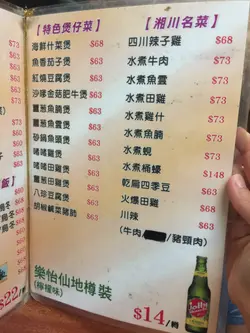 【特色煲仔菜】
海鮮什菜煲 $68
魚香茄子煲 $63
紅燒豆腐煲 $63
沙嗲金菇肥牛煲 $63
薑蔥魚腩煲
薑蔥魚雲煲
砂鍋魚頭煲 $68
啫啫雞煲 $63
啫啫田雞煲
八珍豆腐煲 $68
胡椒鹹菜豬肺
【湘川名菜】
四川辣子雞 $68
水煮牛肉 $73
水煮魚雲 $73
水煮田雞 $73
水煮雞什 $73
水煮魚腩 $73
水煮蜆 $73
水煮桶蠔 $148
乾扁四季豆 $63
火爆田雞 $68
川辣 $63
(牛肉/豬頸肉)
樂怡仙地樽裝
(檸檬味)
$14/樽
$73
$73
$63
$63
$73
$73
$63
飯】
烏冬
烏冬
$22
Jolly
Shandy